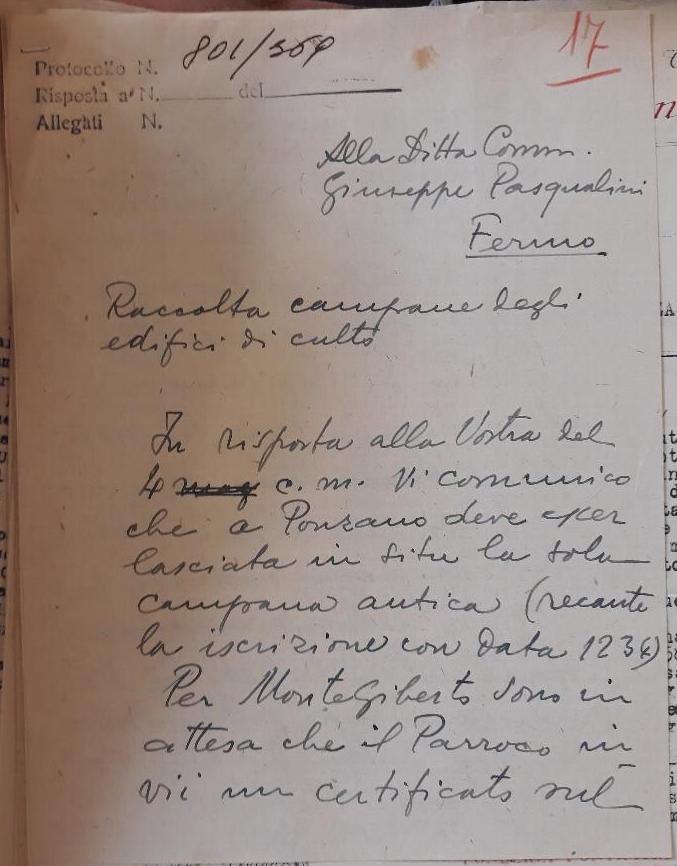 17
Protocollo N. 801/369
Risposta a N. del
Allegati N.
Alla Ditta Comm.
Giuseppe Pasqualini
Fermo
Raccolta campane degli
edifici di culto
In risposta alla Vostra del
4 c. m. Vi comunico
che a Ponzano deve esser
lasciata in situ la sola
campana antica (recante
la iscrizione con data 123
Per Montegiberto sono in
attesa che il Parroco in-
vii un certificato sul